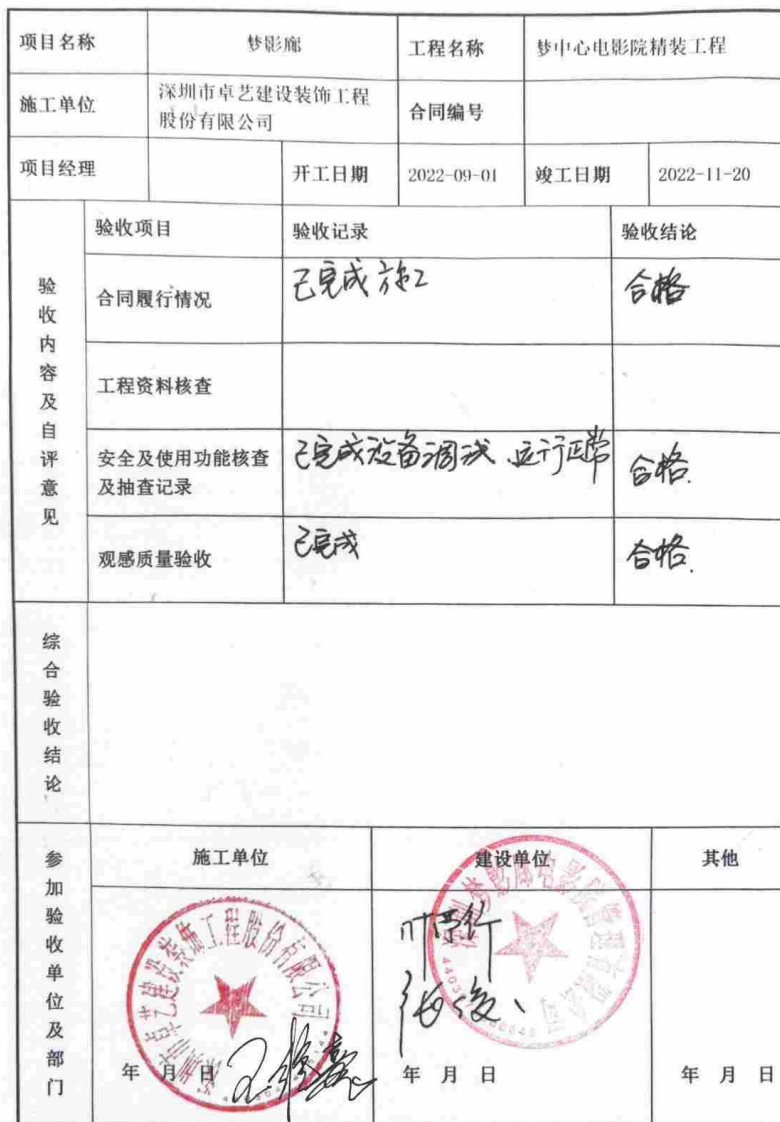 项目名称 梦影廊 工程名称 梦中心电影院精装工程
施工单位 深圳市卓艺建设装饰工程
股份有限公司 合同编号
项目经理 开工日期 2022-09-01 竣工日期 2022-11-20
验收内容及自评意见
验收项目 验收记录 验收结论
合同履行情况 已完成施工 合格
工程资料核查
安全及使用功能核查
及抽查记录 已完成设备调试、运行正常 合格.
观感质量验收 已完成 合格.
综合验收结论
参加验收单位及部门
施工单位 建设单位 其他
深圳市卓艺建设装饰工程股份有限公司
深圳梦影廊电影院管理有限公司
年 月 日 年 月 日 年 月 日